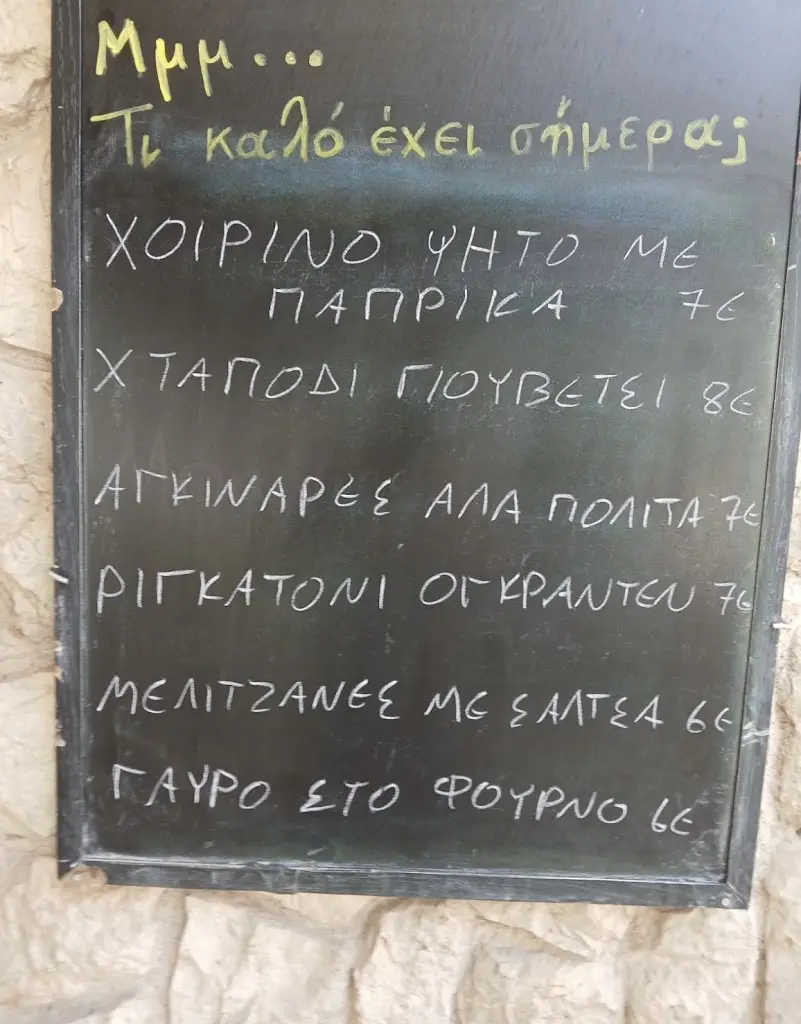 Μμμ...
Τι καλό έχει σήμερα;
ΧΟΙΡΙΝΟ ΨΗΤΟ ΜΕ
ΠΑΠΡΙΚΑ 7€
ΧΤΑΠΟΔΙ ΓΙΟΥΒΕΤΣΙ 8€
ΑΓΚΙΝΑΡΕΣ ΑΛΑ ΠΟΛΙΤΑ 7€
ΡΙΓΚΑΤΟΝΙ ΟΓΚΡΑΝΤΕΝ 7€
ΜΕΛΙΤΖΑΝΕΣ ΜΕ ΣΑΛΤΣΑ 6€
ΓΑΥΡΟ ΣΤΟ ΦΟΥΡΝΟ 6€